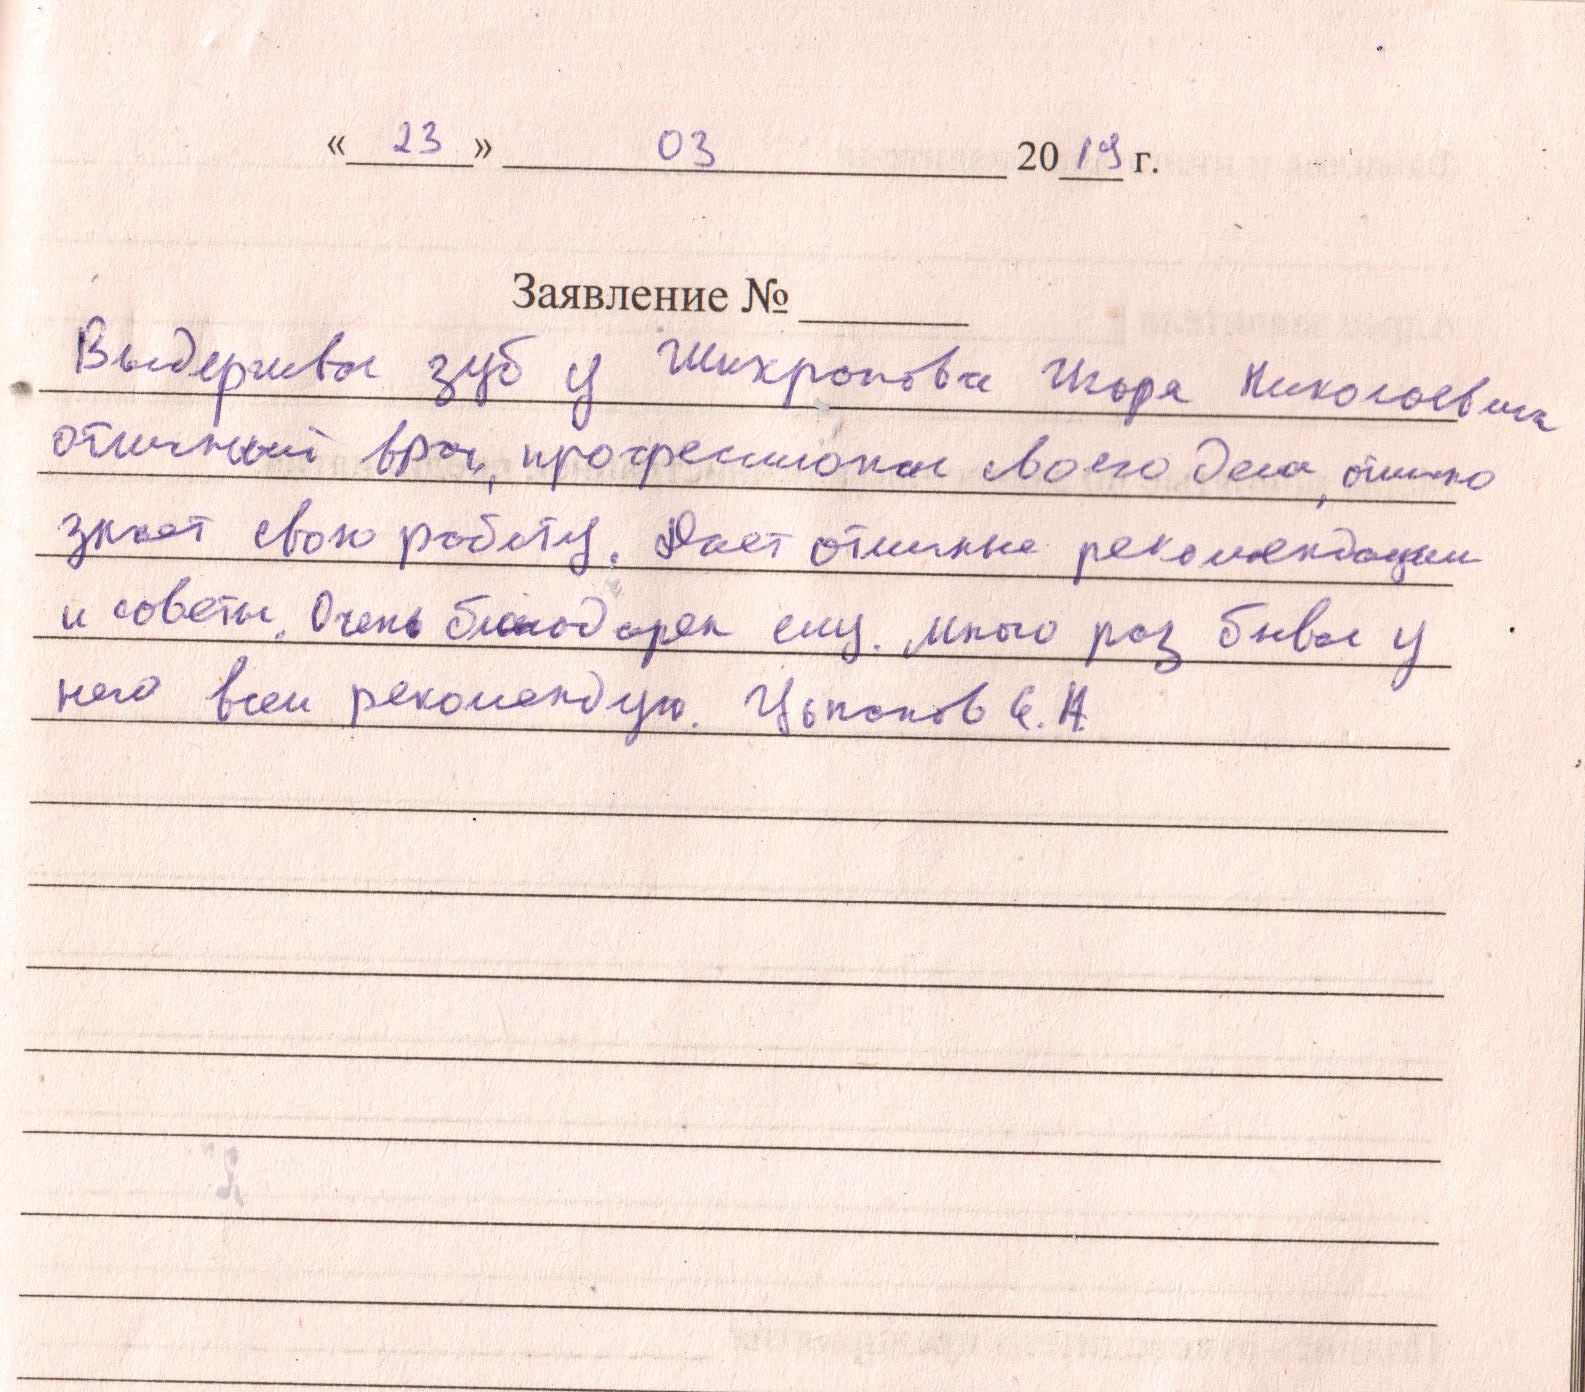 « 23 » 03 2019 г.
Заявление №
Выдергивал зуб у Шихранова Игоря Николаевича
отличный врач, профессионал своего дела, отлично
знает свою работу. Дает отличные рекомендации
и советы. Очень благодарен ему. Много раз бывал у
него всем рекомендую. Цыпанов Е.Н.